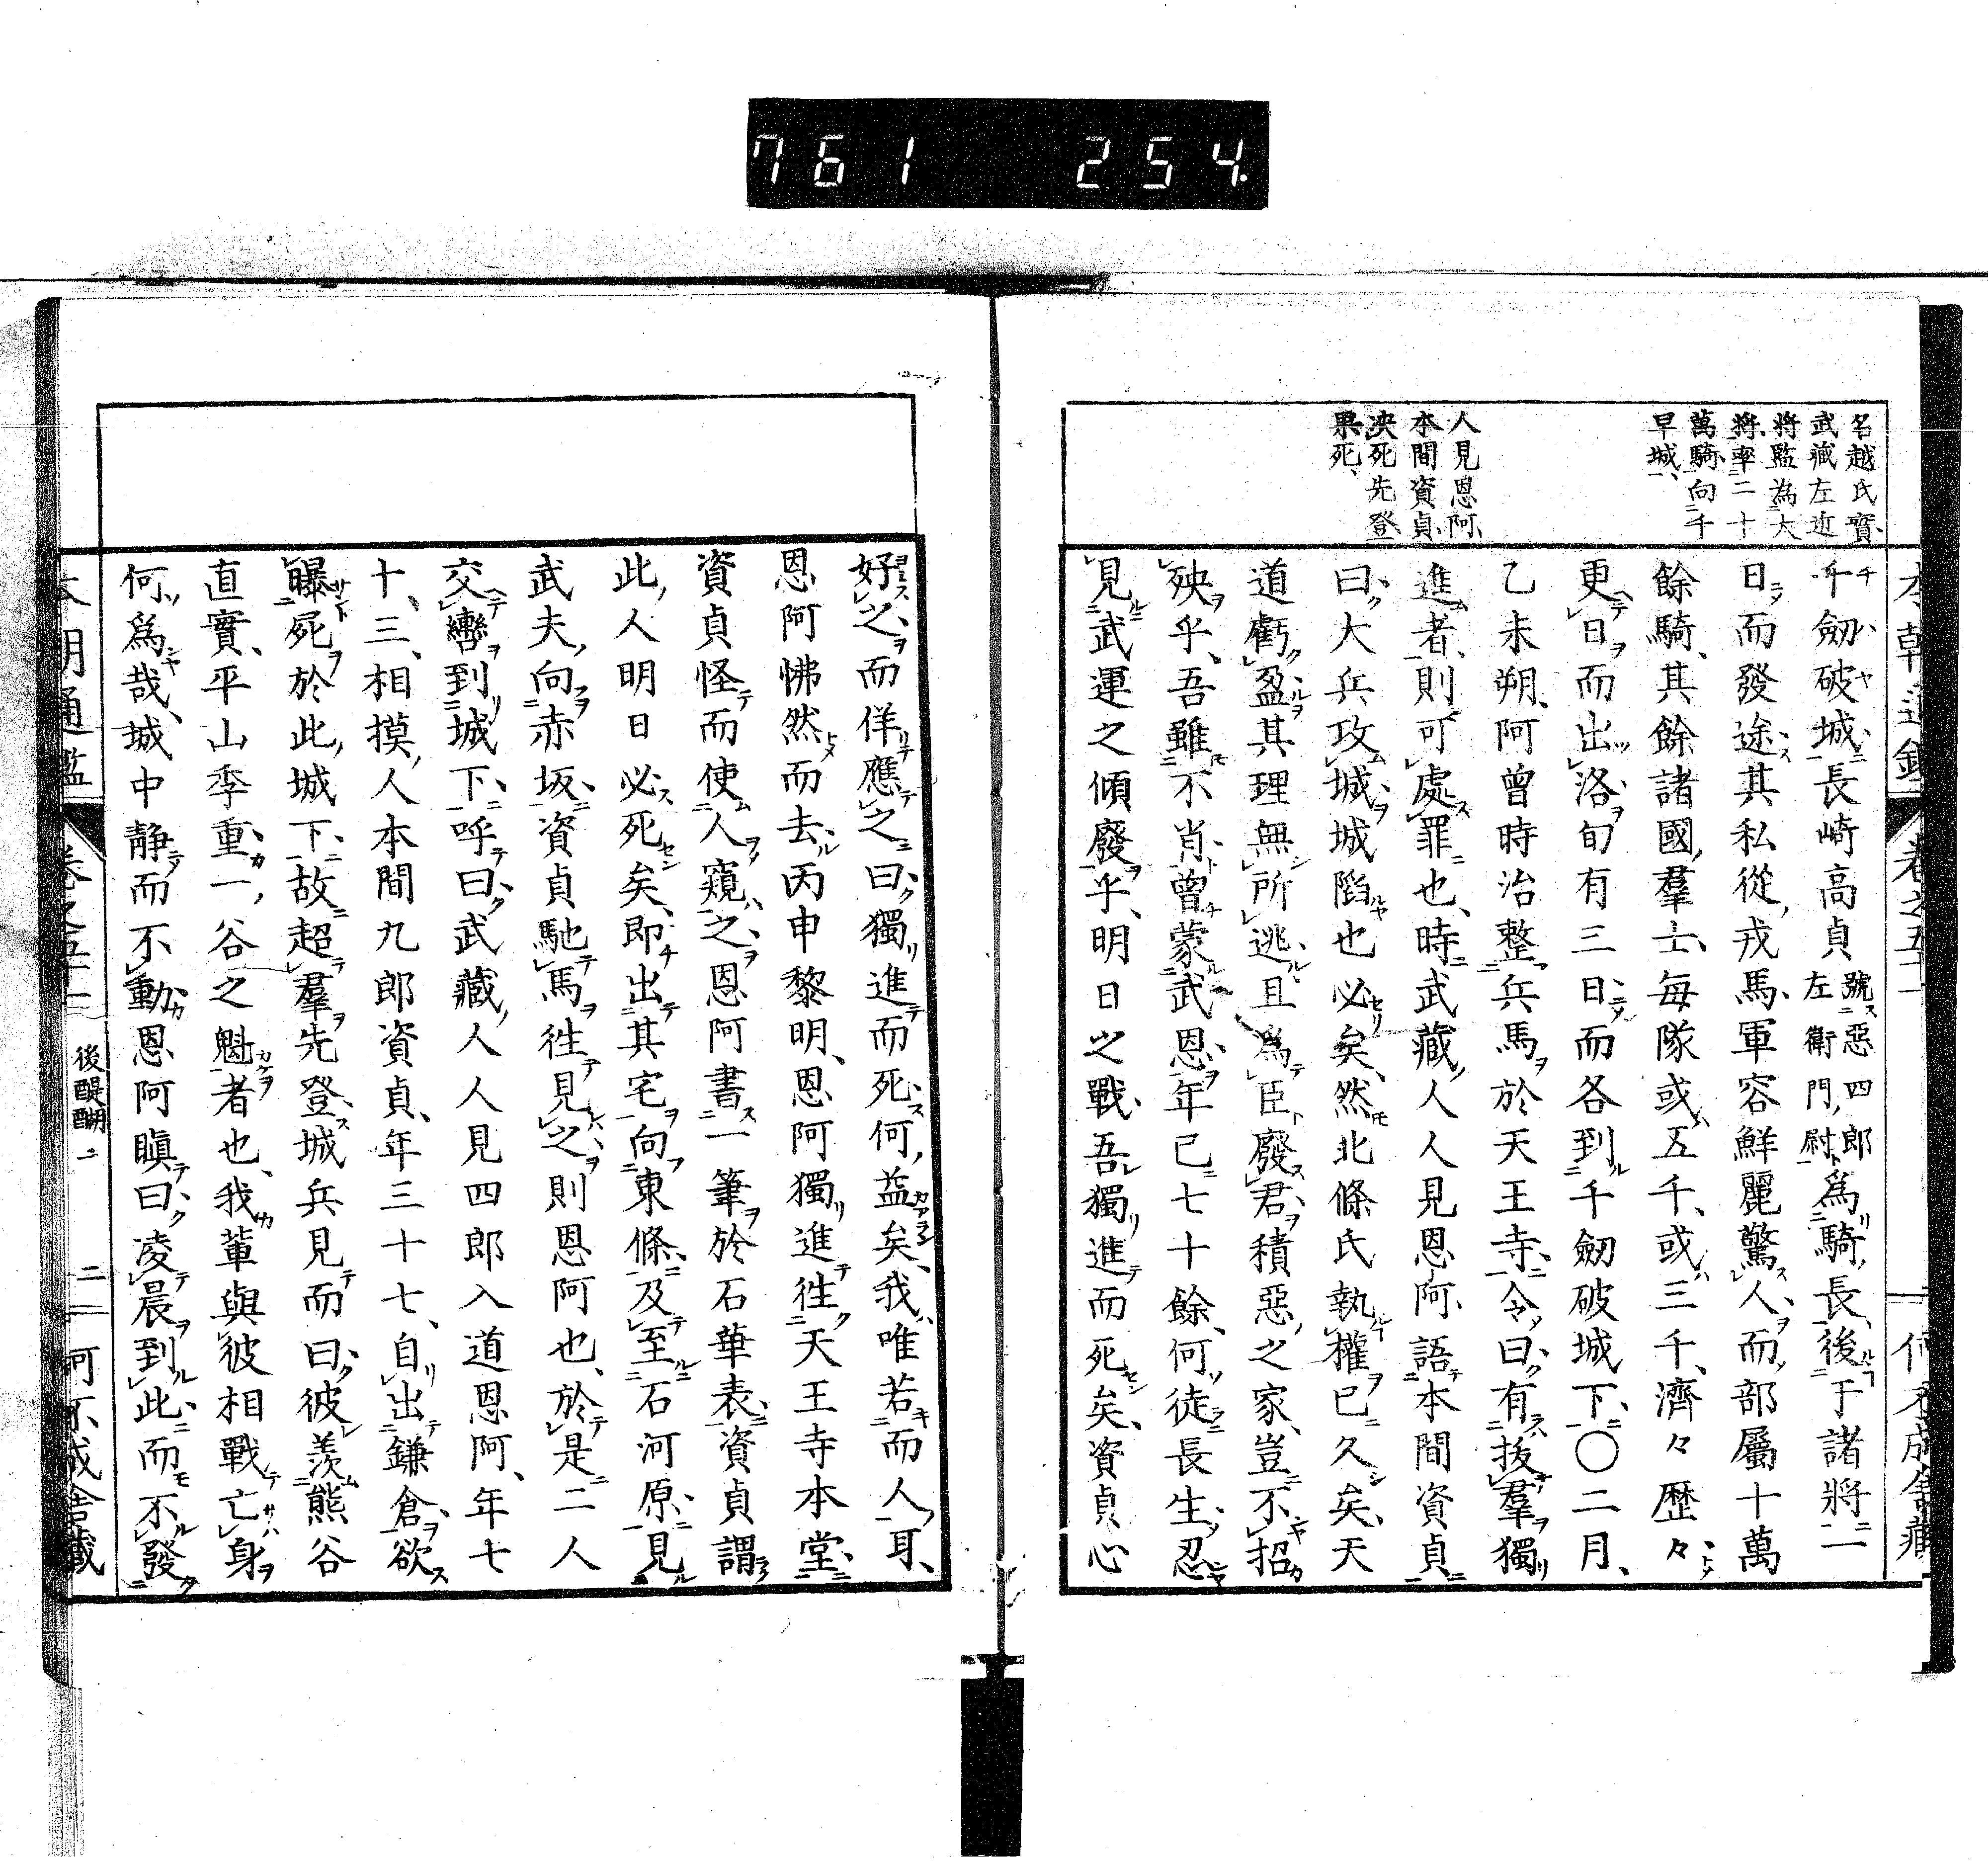 761 254
名越氏實
武藏左近
將監為大
將率二十
萬騎向千
早城
人見恩阿
本間資貞
决死先登
果死
千劒破城長崎高貞號惡四郎左衛門尉爲騎長後于諸將二
日而發途其私從戎馬軍容鮮麗驚人而部屬十萬
餘騎其餘諸國羣士每隊或五千或三千濟々歷々
更日而出洛旬有三日而各到千劒破城下〇二月
乙未朔阿曾時治整兵馬於天王寺令曰有拔羣獨
進者則可處罪也時武藏人人見恩阿語本間資貞
曰大兵攻城城陷也必矣然北條氏執權已久矣天
道虧盈其理無所逃且爲臣廢君積惡之家豈不招
殃乎吾雖不肖曾蒙武恩年已七十餘何徒長生忍
見武運之傾廢乎明日之戰吾獨進而死矣資貞心
好之而佯應之曰獨進而死何益矣我唯若而人耳
恩阿怫然而去丙申黎明恩阿獨進徃天王寺本堂
資貞怪而使人窺之恩阿書一筆於石華表資貞謂
此人明日必死矣即出其宅向東條及至石河原見
武夫向赤坂資貞馳馬徃見之則恩阿也於是二人
交轡到城下呼曰武藏人人見四郎入道恩阿年七
十三相摸人本間九郎資貞年三十七自出鎌倉欲
曝死於此城下故超羣先登城兵見而曰彼羨熊谷
直實平山季重一谷之魁者也我輩與彼相戰亡身
何爲哉城中靜而不動恩阿瞋曰凌晨到此而不發
本朝通鑑 卷之五十二 後醍醐二 二 何不成舎藏